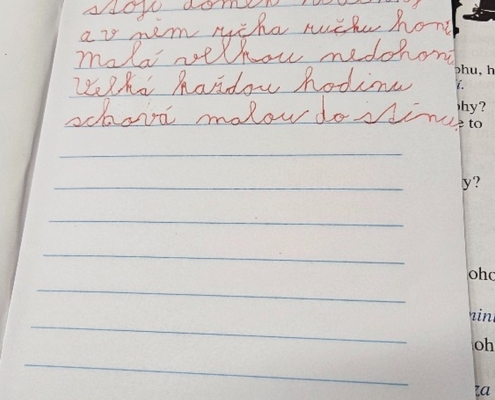 stojí domek
a v něm ručka ručku honí
Malá velkou nedohoní
Velká každou hodinu
schová malou do stínu.
ohu, h
í.
phy?
e to
y?
oho
mini
oh
za